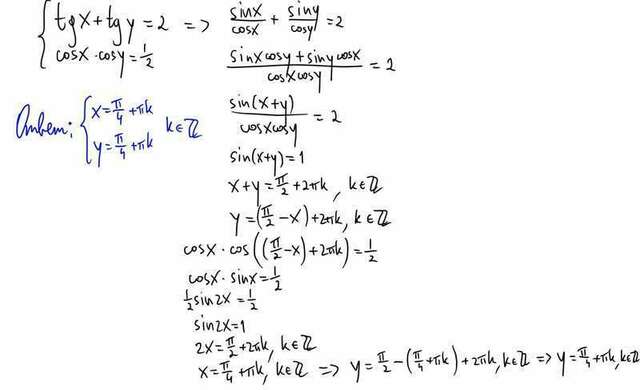 { tgx + tgy = 2 => sinx/cosx + siny/cosy = 2
cosx · cosy = 1/2
(sinx cosy + siny cosx)/(cosx cosy) = 2
Ответ: { x = π/4 + πk
y = π/4 + πk k ∈ ℤ
sin(x+y)/(cosx cosy) = 2
sin(x+y) = 1
x + y = π/2 + 2πk, k ∈ ℤ
y = (π/2 - x) + 2πk, k ∈ ℤ
cosx · cos((π/2 - x) + 2πk) = 1/2
cosx · sinx = 1/2
1/2 sin2x = 1/2
sin2x = 1
2x = π/2 + 2πk, k ∈ ℤ
x = π/4 + πk, k ∈ ℤ => y = π/2 - (π/4 + πk) + 2πk, k ∈ ℤ => y = π/4 + πk, k ∈ ℤ